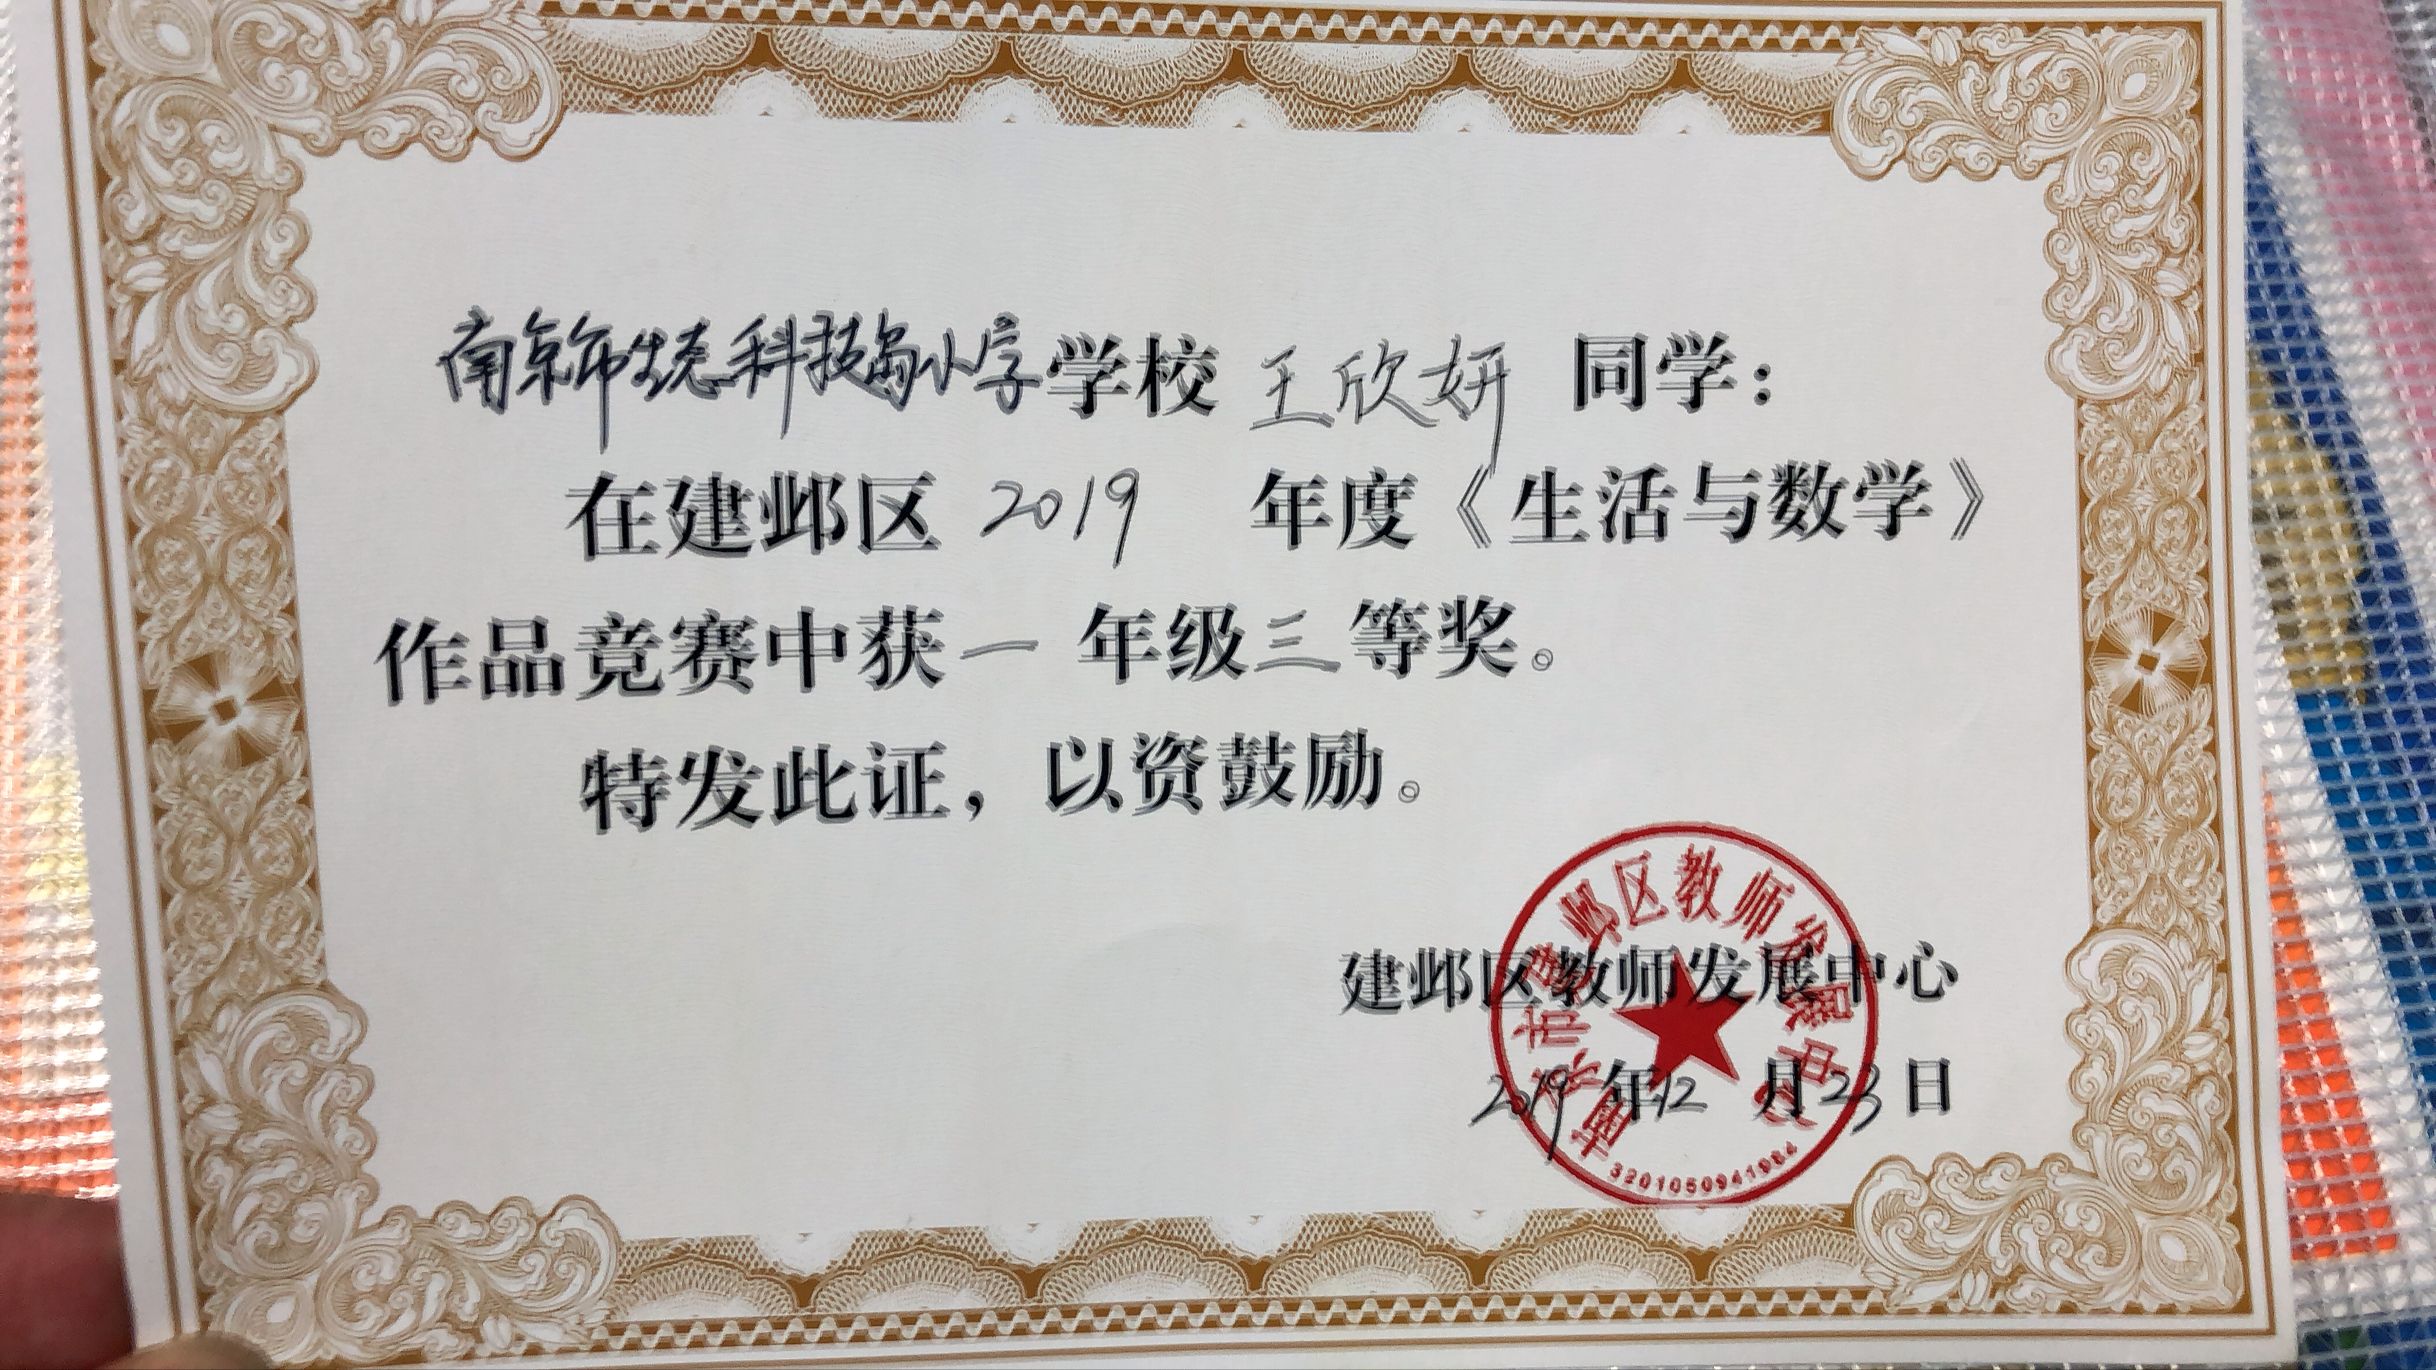 南京市生态科技岛小学学校 王欣妍 同学：
在建邺区 2019 年度《生活与数学》
作品竞赛中获一年级三等奖。
特发此证，以资鼓励。
建邺区教师发展中心
2019年12月23日
南京市建邺区教师发展中心
3201050941984